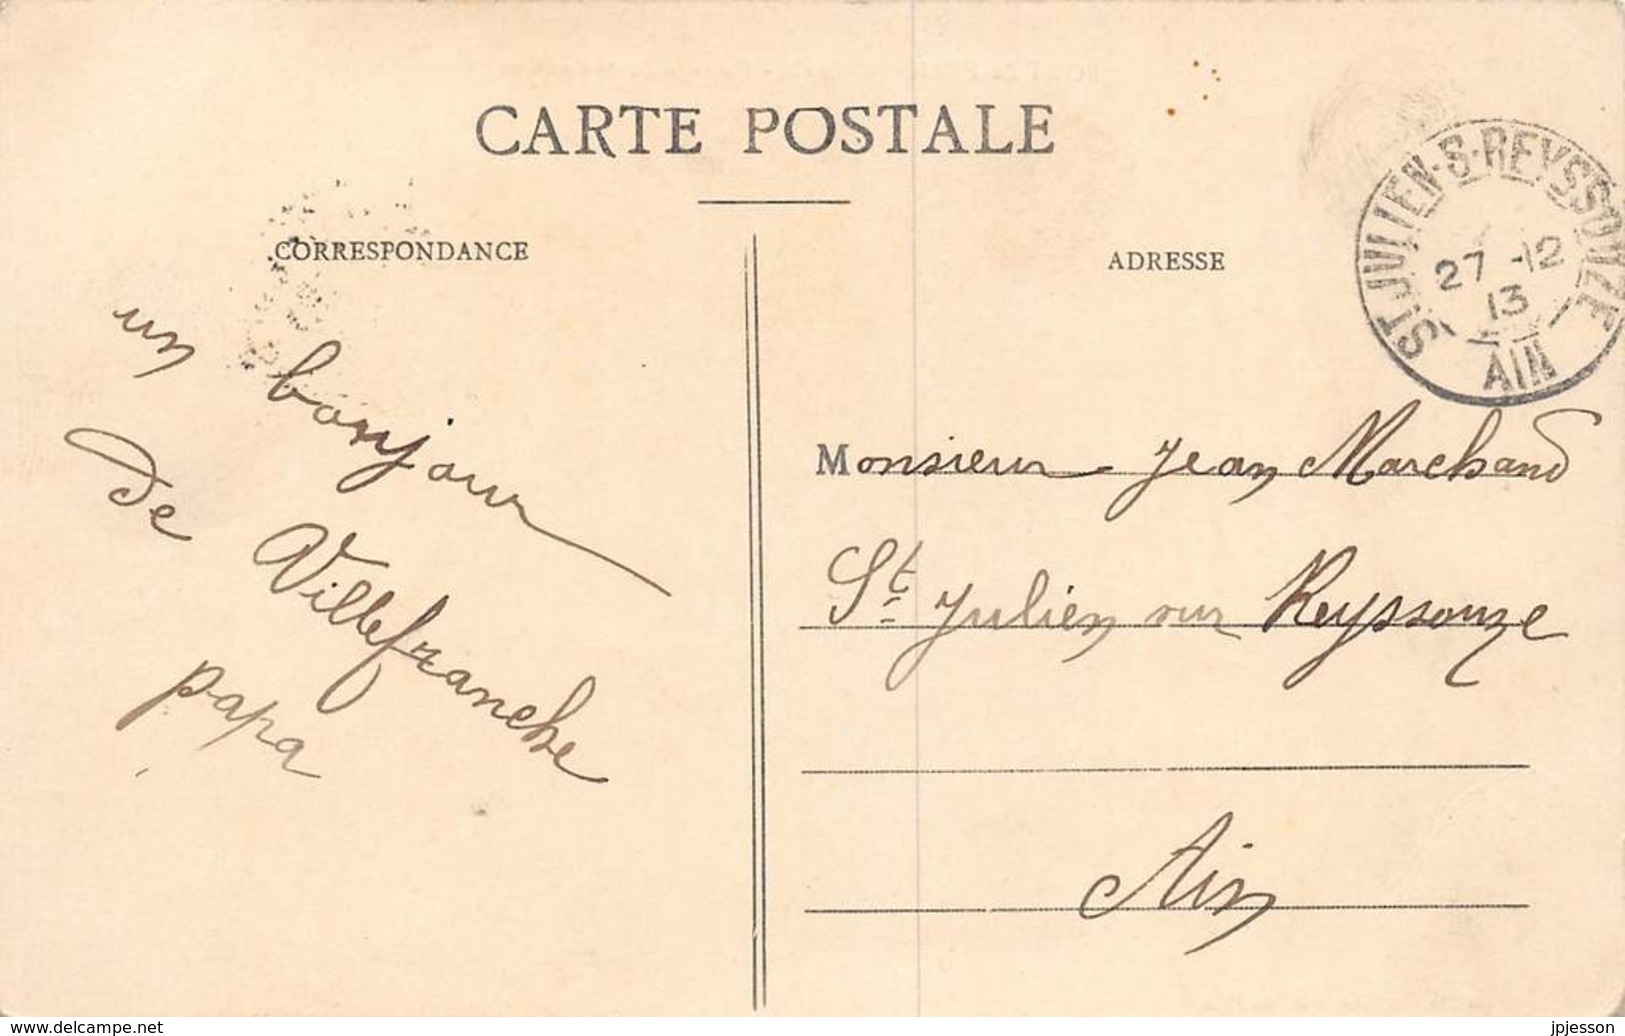 CARTE POSTALE
CORRESPONDANCE
ADRESSE
ST JULIEN-S-REYSSOUZE
27 -12
13
AIN
un bonjour
de Villefranche
papa
Monsieur Jean Marchand
St. Julien sur Reyssouze
Ain
www.delcampe.net
jpjesson